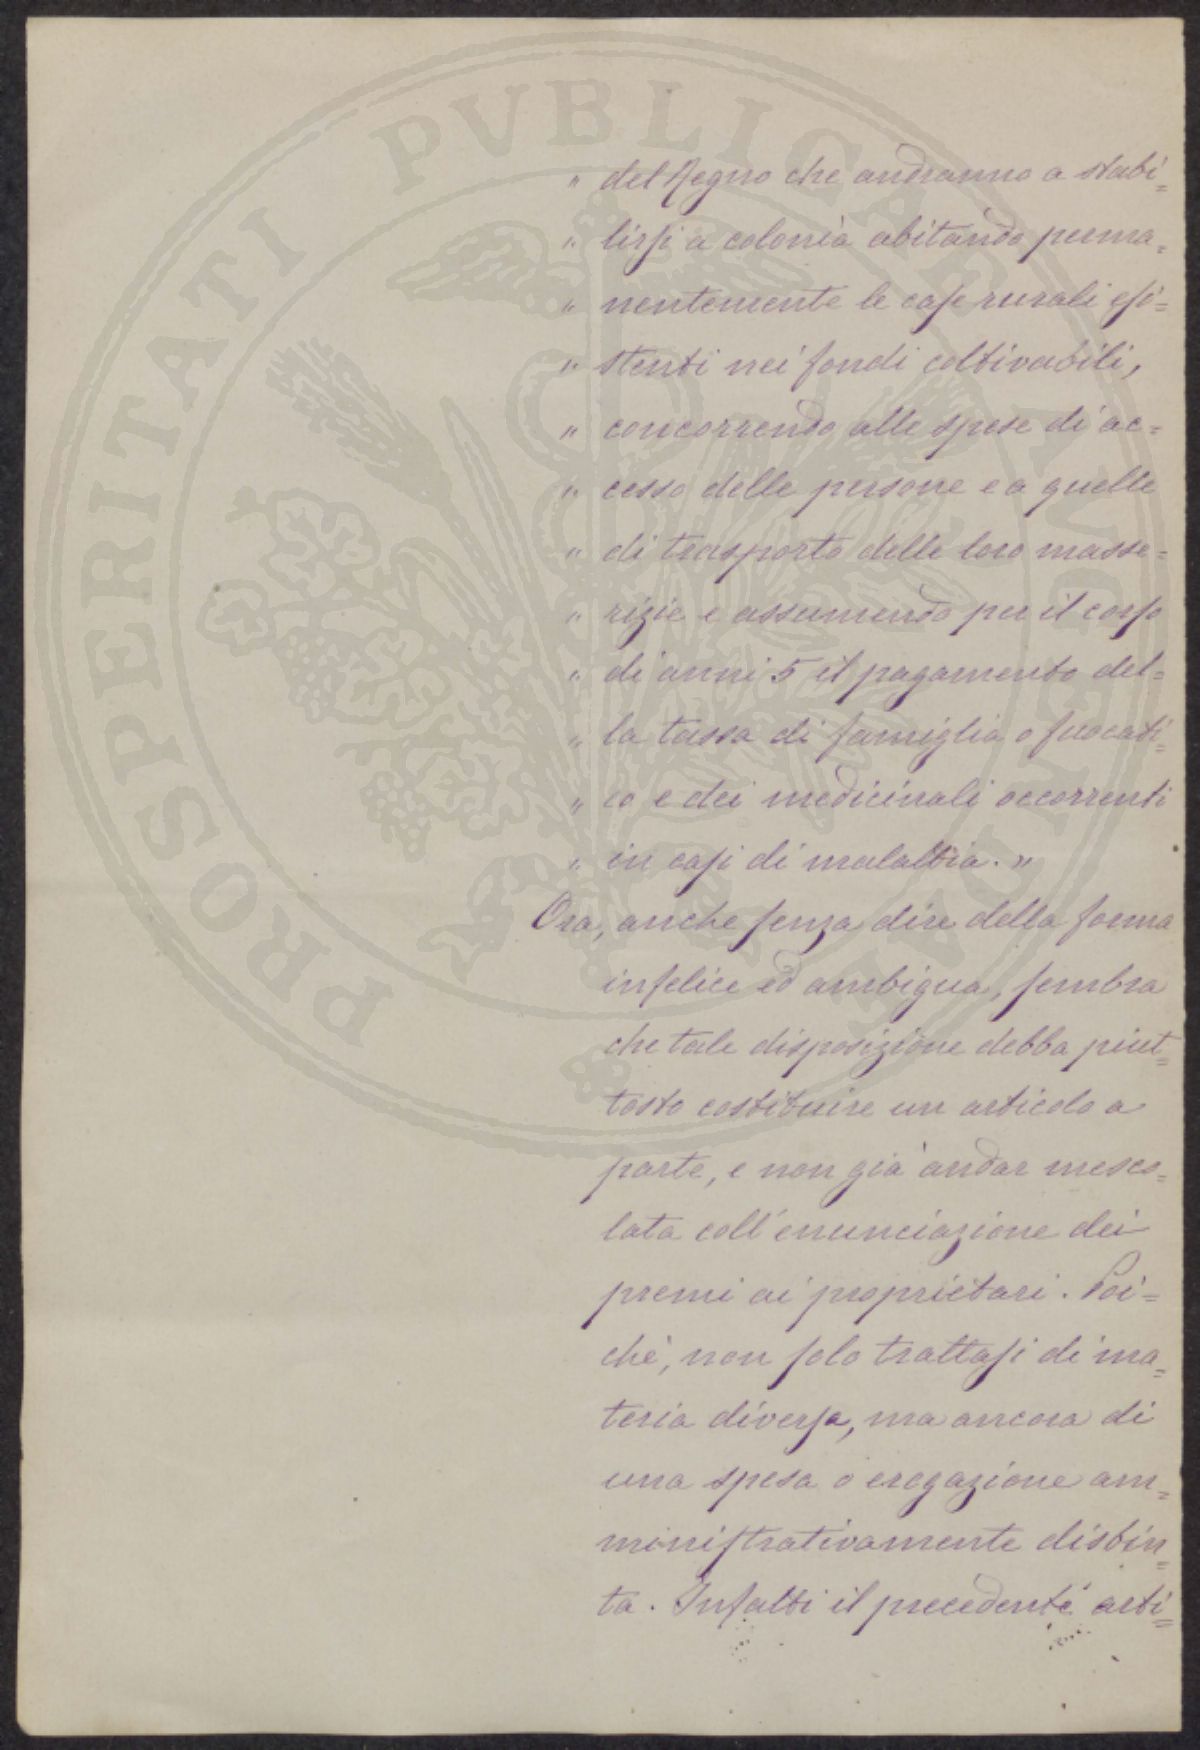 " del Regno che andranno a stabi=
" lirsi a colonia abitando perma=
" nentemente le case rurali esi=
" stenti nei fondi coltivabili,
" concorrendo alle spese di ac=
" cesso delle persone e a quelle
" di trasporto delle loro masse=
" rizie e assumendo per il corso
" di anni 5 il pagamento del=
" la tassa di famiglia o fuocati=
" co e dei medicinali occorrenti
" in casi di malattia. "
Ora, anche senza dire della forma
infelice ed ambigua, sembra
che tale disposizione debba piut=
tosto costituire un articolo a
parte, e non già andar mesco=
lata coll'enunciazione dei
premi ai proprietari. Poi=
chè, non solo trattasi di ma=
teria diversa, ma ancora di
una spesa o erogazione am=
ministrativamente distin=
ta. Infatti il precedente arti=
PROSPERITATI PVBLICAE